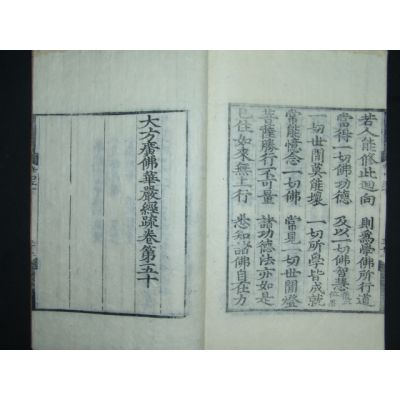 若人能修此迴向　則為學佛所行道
當得一切佛功德　及以一切佛智慧
一切世間莫能壞　一切所學皆成就
常能憶念一切佛　常見一切世間燈
菩薩勝行不可量　諸功德法亦如是
已住如來無上行　悉知諸佛自在力
大方廣佛華嚴經疏卷第五十